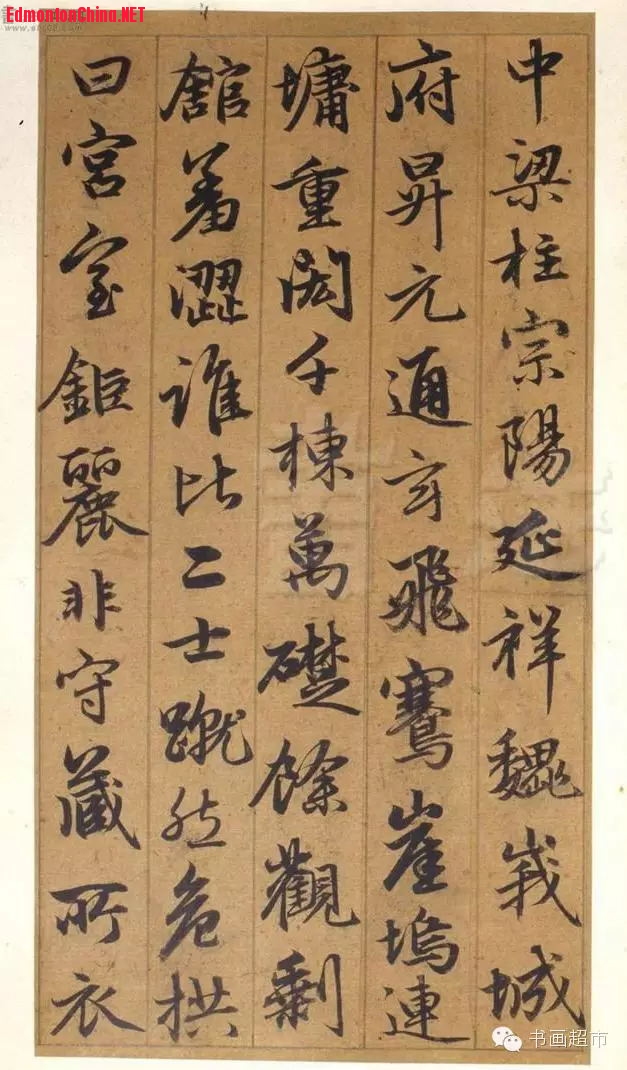 EdmontonChina.NET
中梁柱宗陽延祥魏峩城
府昇元通玄飛騫崖塢連
墉重閎千棟萬礎餘觀剩
舘羞澀誰比二士蹴然危拱
曰宮室鉅麗非守藏所衣
书画超市